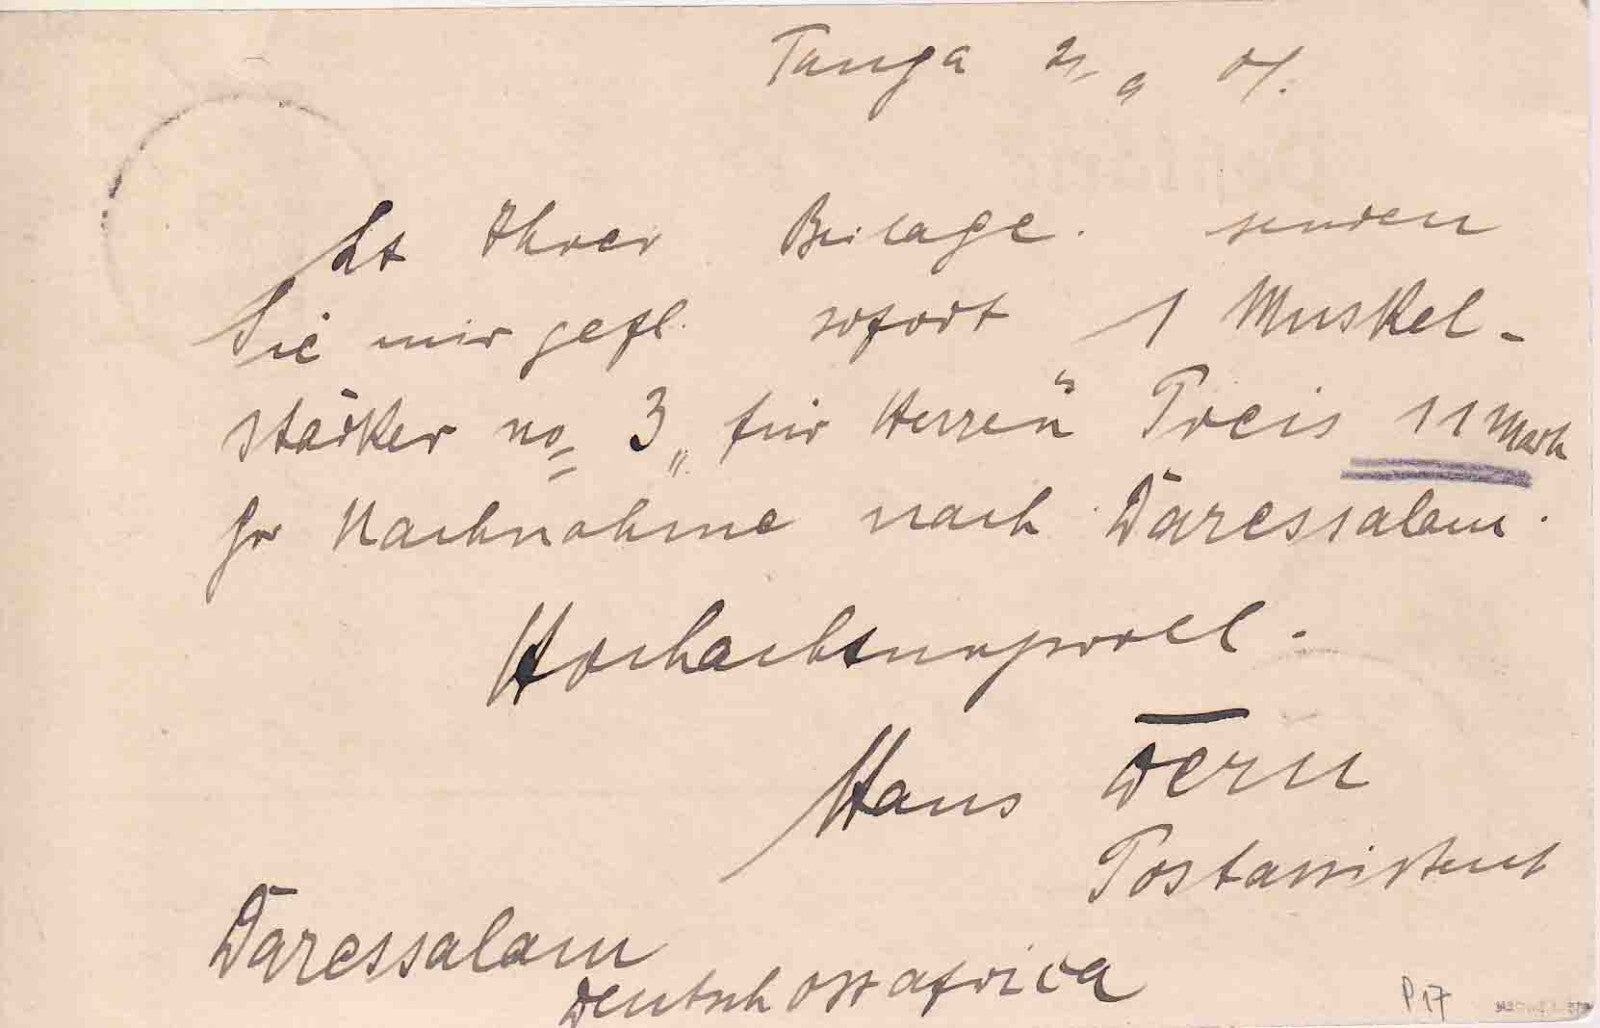 Tanga 21/9 01.
Lt Ihrer Beilage. senden
Sie mir gefl. sofort 1 Muskel-
stärker no 3 „für Herren“ Preis 11 Mark
pr Nachnahme nach Daressalam.
Hochachtungsvoll.
Hans Dern
Postassistent
Daressalam
Deutschostafrica
P 17